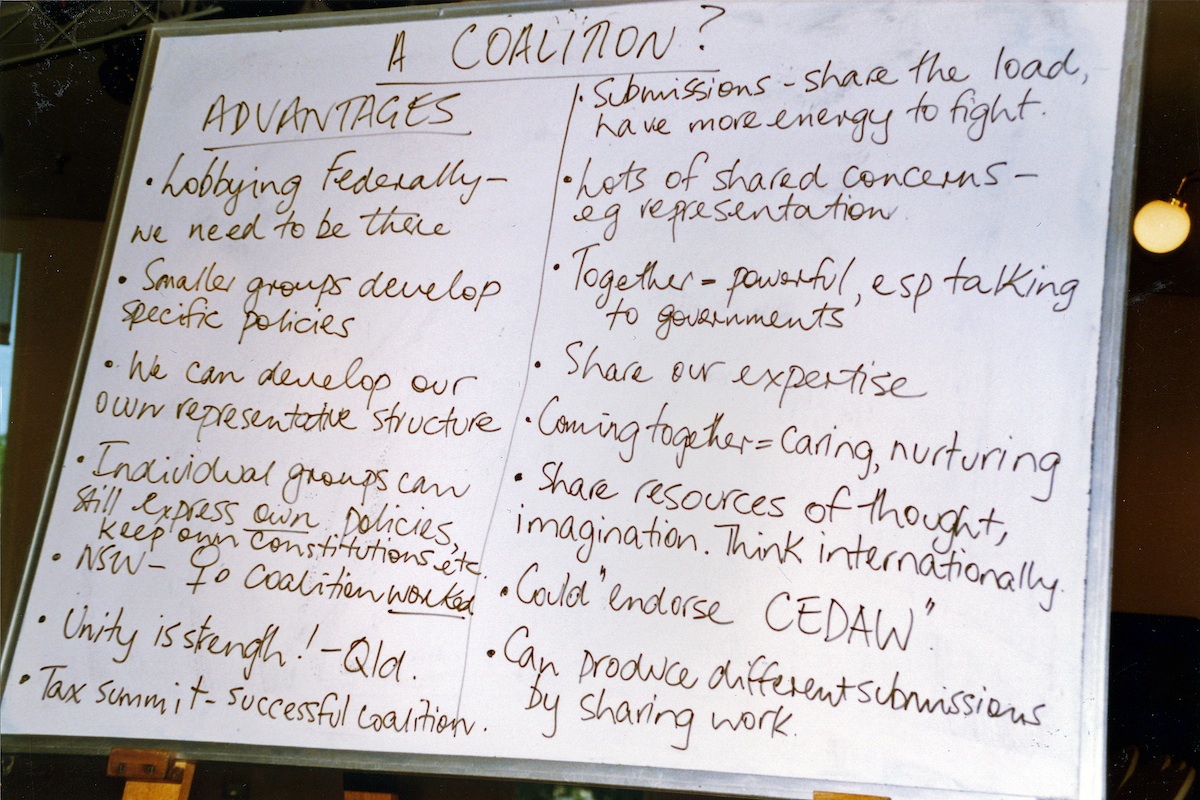 A COALITION?
ADVANTAGES
• Lobbying Federally –
we need to be there
• Smaller groups develop
specific policies
• We can develop our
own representative structure
• Individual groups can
still express own policies,
keep own constitutions, etc.
• NSW – ♀o Coalition worked
• Unity is strength! – Qld.
• Tax summit – successful coalition.
• Submissions – share the load,
have more energy to fight.
• Lots of shared concerns –
eg representation
• Together = powerful, esp talking
to governments
• Share our expertise
• Coming together = caring, nurturing
• Share resources of thought,
imagination. Think internationally.
• Could "endorse CEDAW".
• Can produce different submissions
by sharing work.